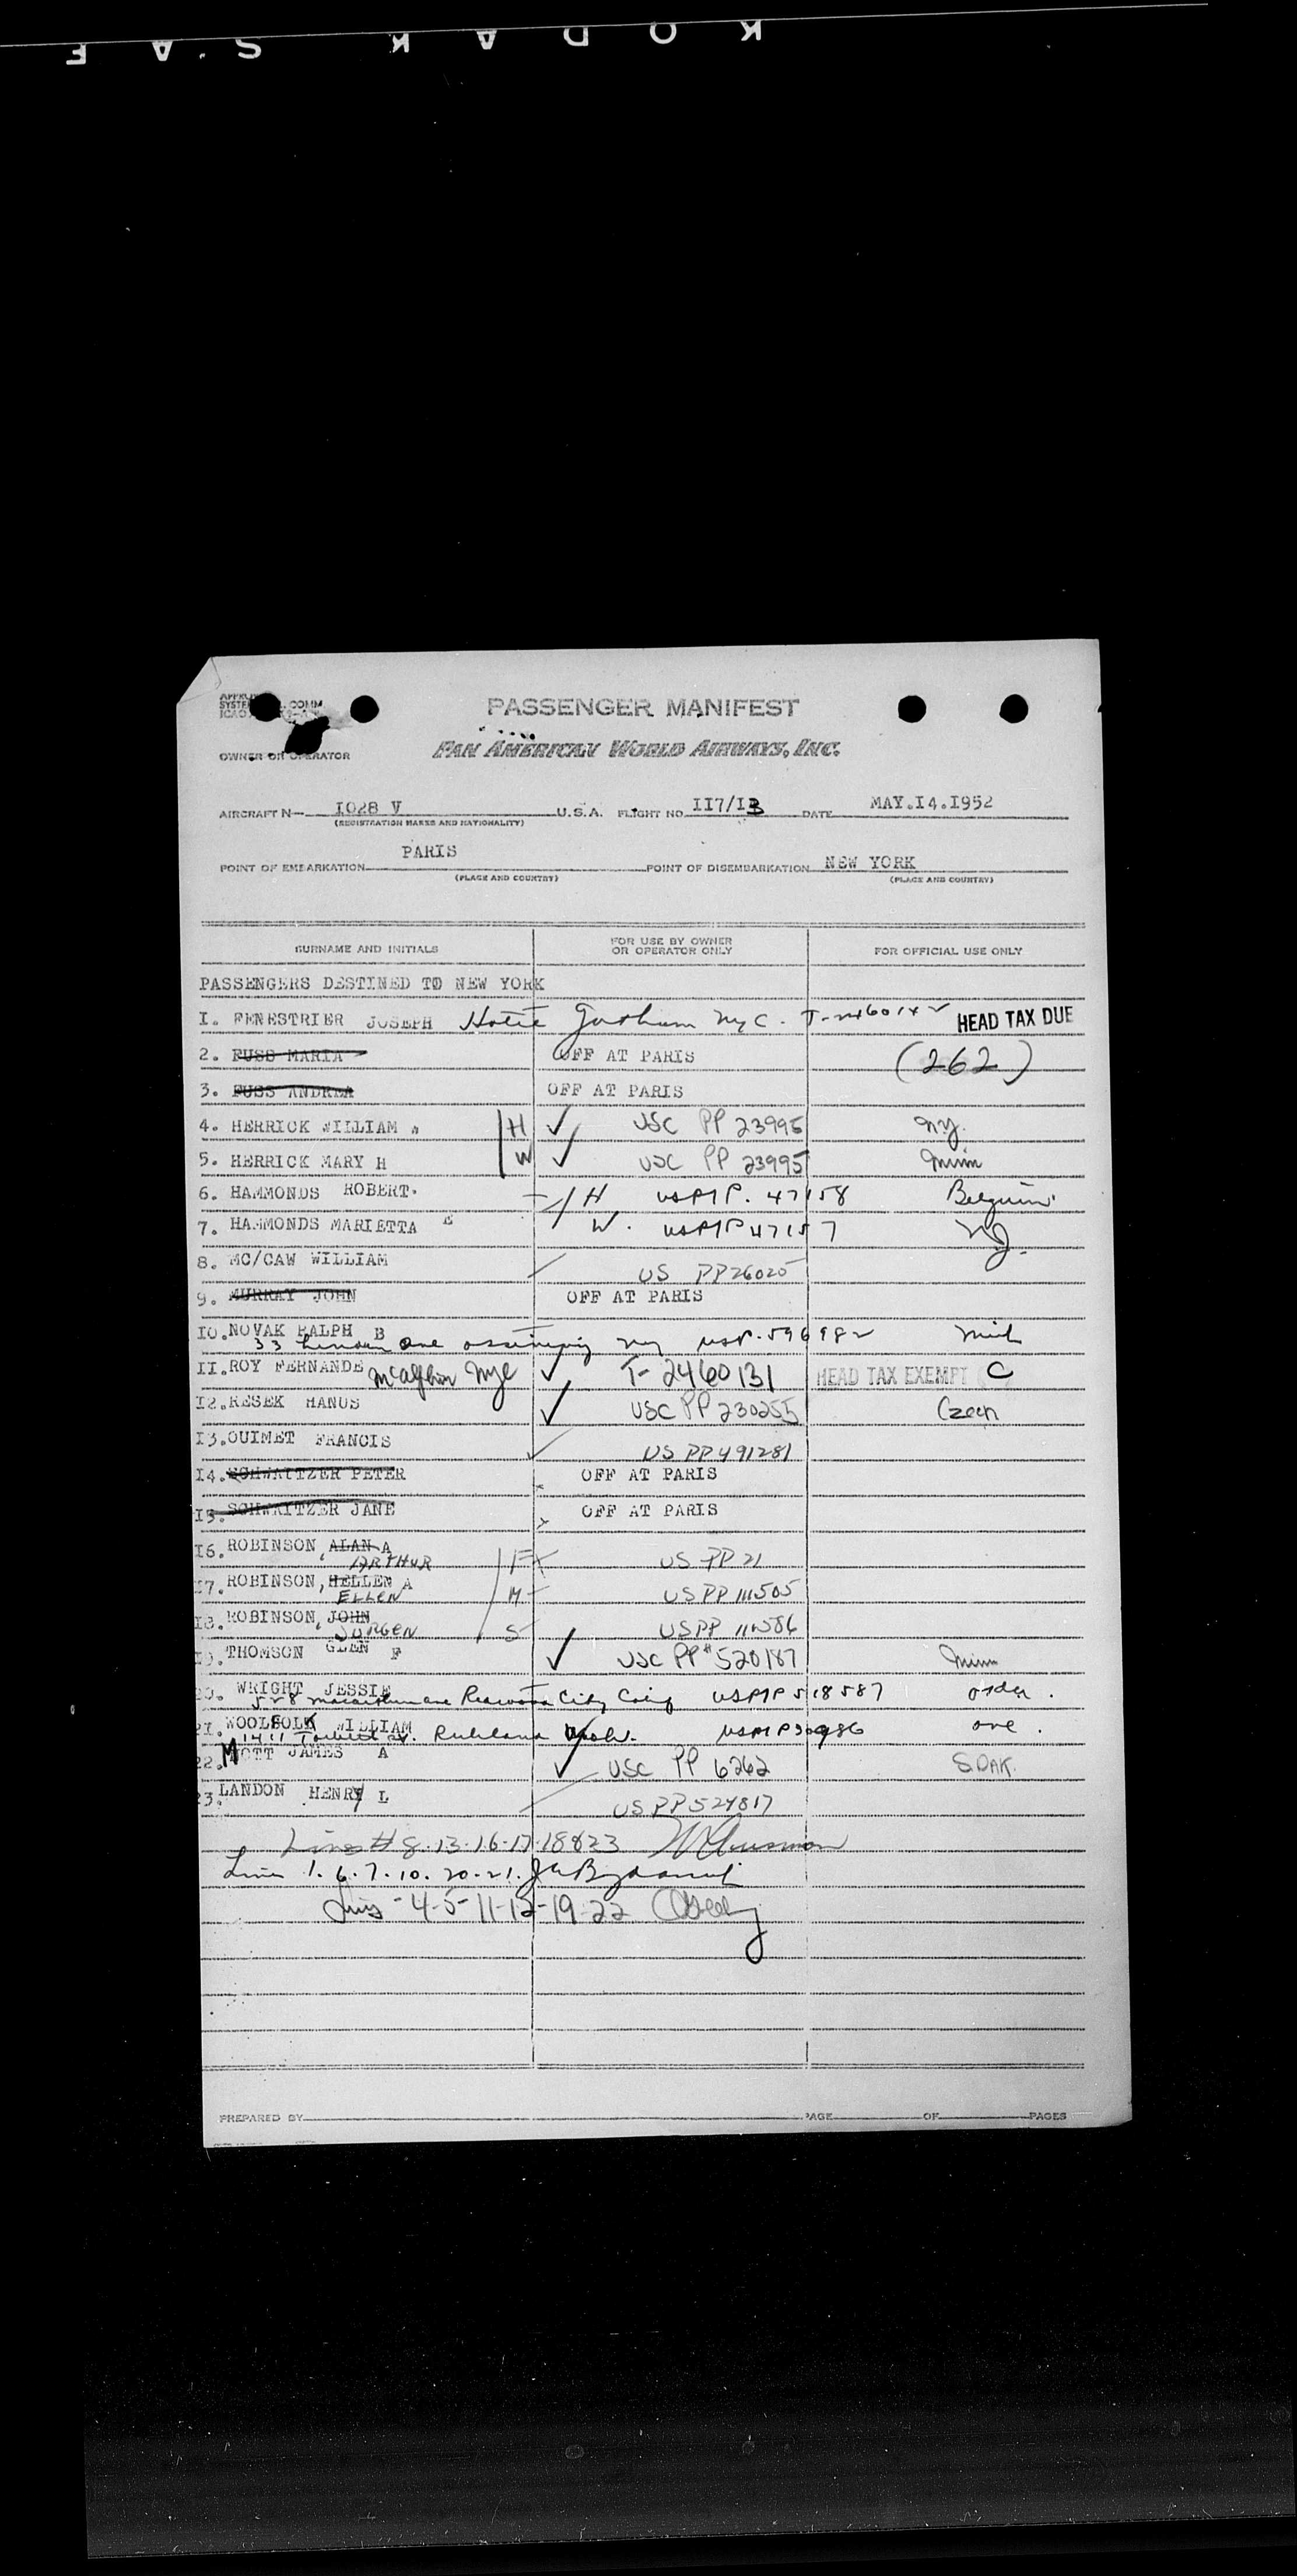 KODAK SAF
PASSENGER MANIFEST
PAN AMERICAN WORLD AIRWAYS, INC.
OWNER OR OPERATOR
AIRCRAFT N— 1028 V U.S.A. FLIGHT NO. II7/I3 DATE MAY.I4.I952
(REGISTRATION MARKS AND NATIONALITY)
POINT OF EMBARKATION PARIS POINT OF DISEMBARKATION NEW YORK
(PLACE AND COUNTRY) (PLACE AND COUNTRY)
SURNAME AND INITIALS FOR USE BY OWNER OR OPERATOR ONLY FOR OFFICIAL USE ONLY
PASSENGERS DESTINED TO NEW YORK
I. FENESTRIER JOSEPH NYC. HEAD TAX DUE
2. FUSS MARIA OFF AT PARIS (262)
3. FUSS ANDREA OFF AT PARIS
4. HERRICK WILLIAM W H ✓ USC PP 23995 NY.
5. HERRICK MARY H W ✓ USC PP 23995 Minn
6. HAMMONDS ROBERT. H 47158 Belgium
7. HAMMONDS MARIETTA E W. 47157 NJ.
8. MC/CAW WILLIAM US PP26025
9. MURRAY JOHN OFF AT PARIS
IO. NOVAK RALPH B
33 ave ossining ny
II. ROY FERNANDE McAlpin NYC ✓ T-2460131 HEAD TAX EXEMPT C
I2. RESEK HANUS ✓ USC PP 230255 Czech
I3. OUIMET FRANCIS ✓ US PP491281
I4. SCHWEITZER PETER OFF AT PARIS
I5. SCHWEITZER JANE OFF AT PARIS
I6. ROBINSON, ALAN A F US PP 21
ARTHUR
I7. ROBINSON, HELLEN A M US PP 111505
ELLEN
I8. ROBINSON, JOHN S US PP
JURGEN
I9. THOMSON GLEN F ✓ USC PP# 520187 Minn
20. WRIGHT JESSIE
528 Redwood City Calif 518587
21. WOOLFOLK WILLIAM
1411 Richland Wash.
22. MOTT JAMES A ✓ USC PP 6262 S.DAK.
23. LANDON HENRY L US PP524817
Lines # 8.13.16.17.18&23
Line 1.6.7.10.20.21.
Lines -4-5-11-12-19-22
PREPARED BY PAGE OF PAGES